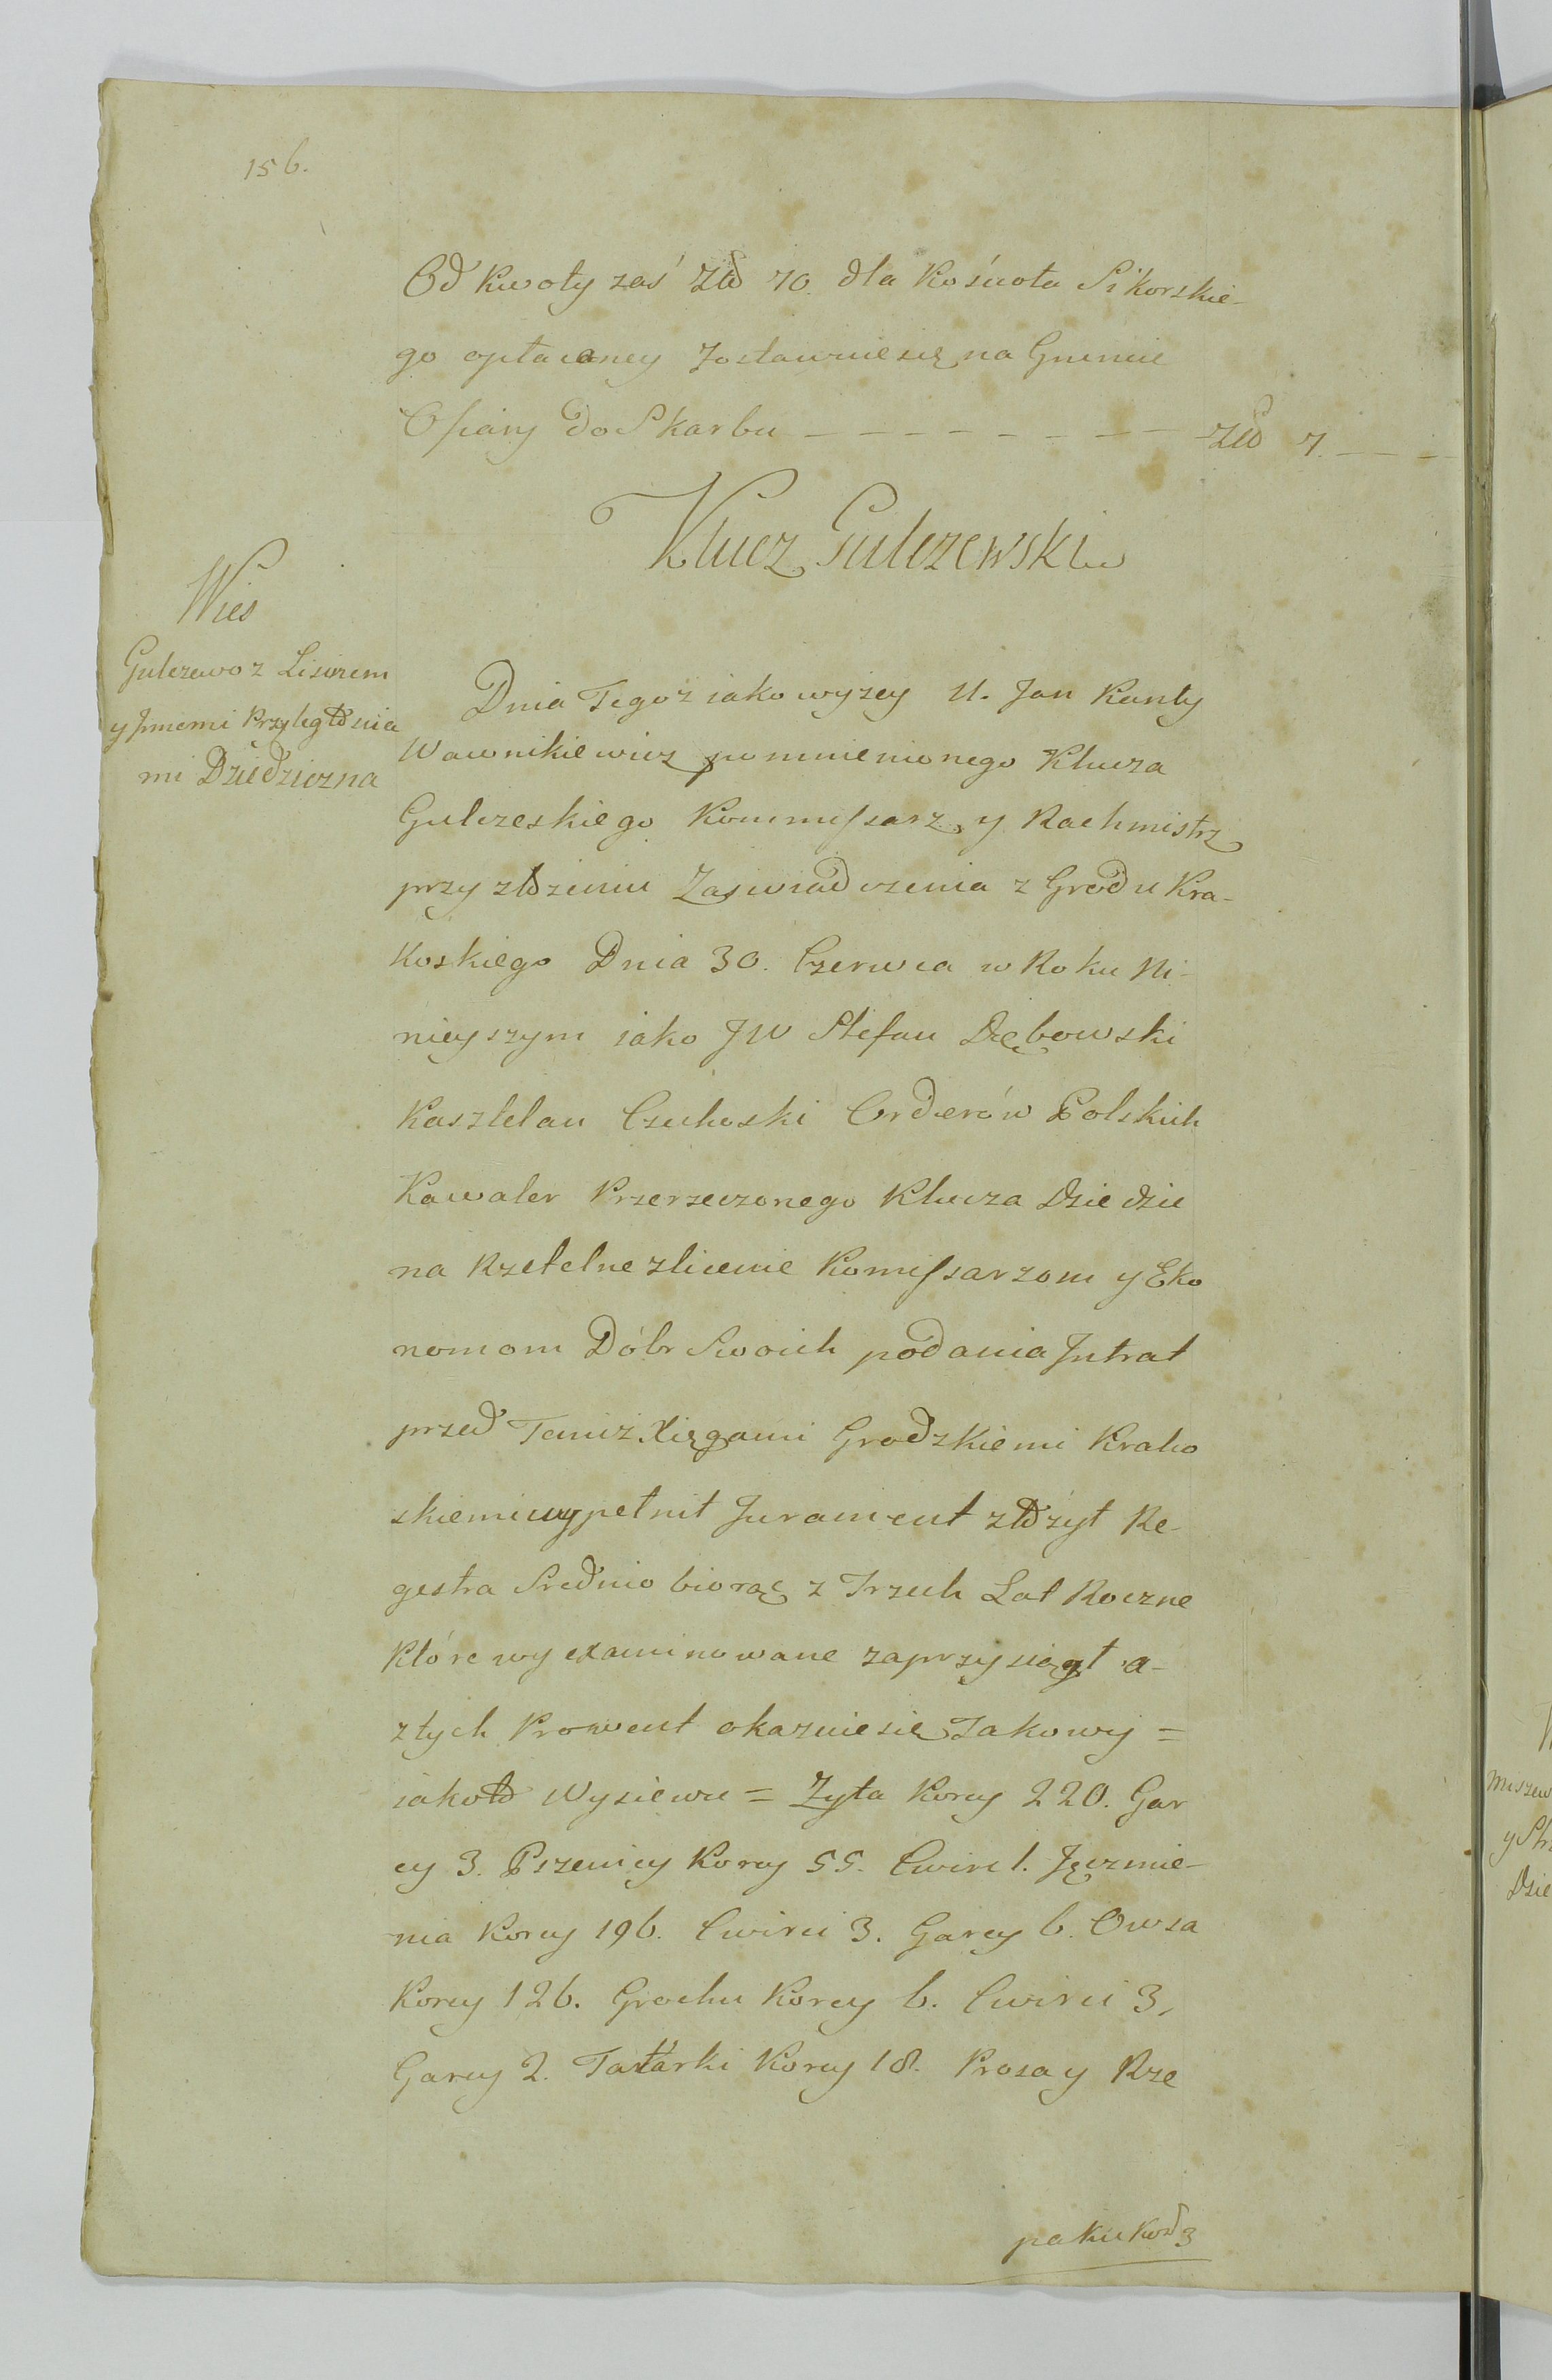 156.
Od Kwoty zaś Złł 70. dla Kościoła Sikorskie-
go opłacaney zostawuie się na Gruncie
Ofiary do Skarbu - - - - - - - - - - złł 7. - - -
Klucz Gulczewski
Wieś
Gulczewo z Lisiczem
y Jnnemi Przyległościa
mi Dziedziczna
Dnia Tegoż iako wyżey U. Jan Kanty
Wawnikiewicz pomnienionego Klucza
Gulczeskiego Kommissarz y Rachmistrz
przy złożeniu Zaświadczenia z Grodu Kra-
koskiego Dnia 30. Czerwca w Roku Ni-
nieyszym iako JW Stefan Dębowski
Kasztelan Czechoski Orderów Polskich
Kawaler Przerzeczonego Klucza Dziedzic
na Rzetelne zlicenie Komissarzom y Eko
nomom Dóbr Swoich podania Jntrat
przed Temiż Xięgami Grodzkiemi Krako
skiemi wypełnił Jurament złożył Re-
gestra Srednio biorąc z Trzech Lat Roczne
które wyexaminowane zaprzysiągł a-
z tych Prowent okazuie się Takowy =
iako to Wysiewu = Zyta Korcy 220. Gar
cy 3. Pszenicy Korcy 55. Cwierć 1. Jęczmie-
nia Korcy 196. Cwierci 3. Garcy 6. Owsa
Korcy 126. Grochu Korcy 6. Cwierci 3,
Garcy 2. Tatarki Korcy 18. Prosa y Rze
paku Kor 3